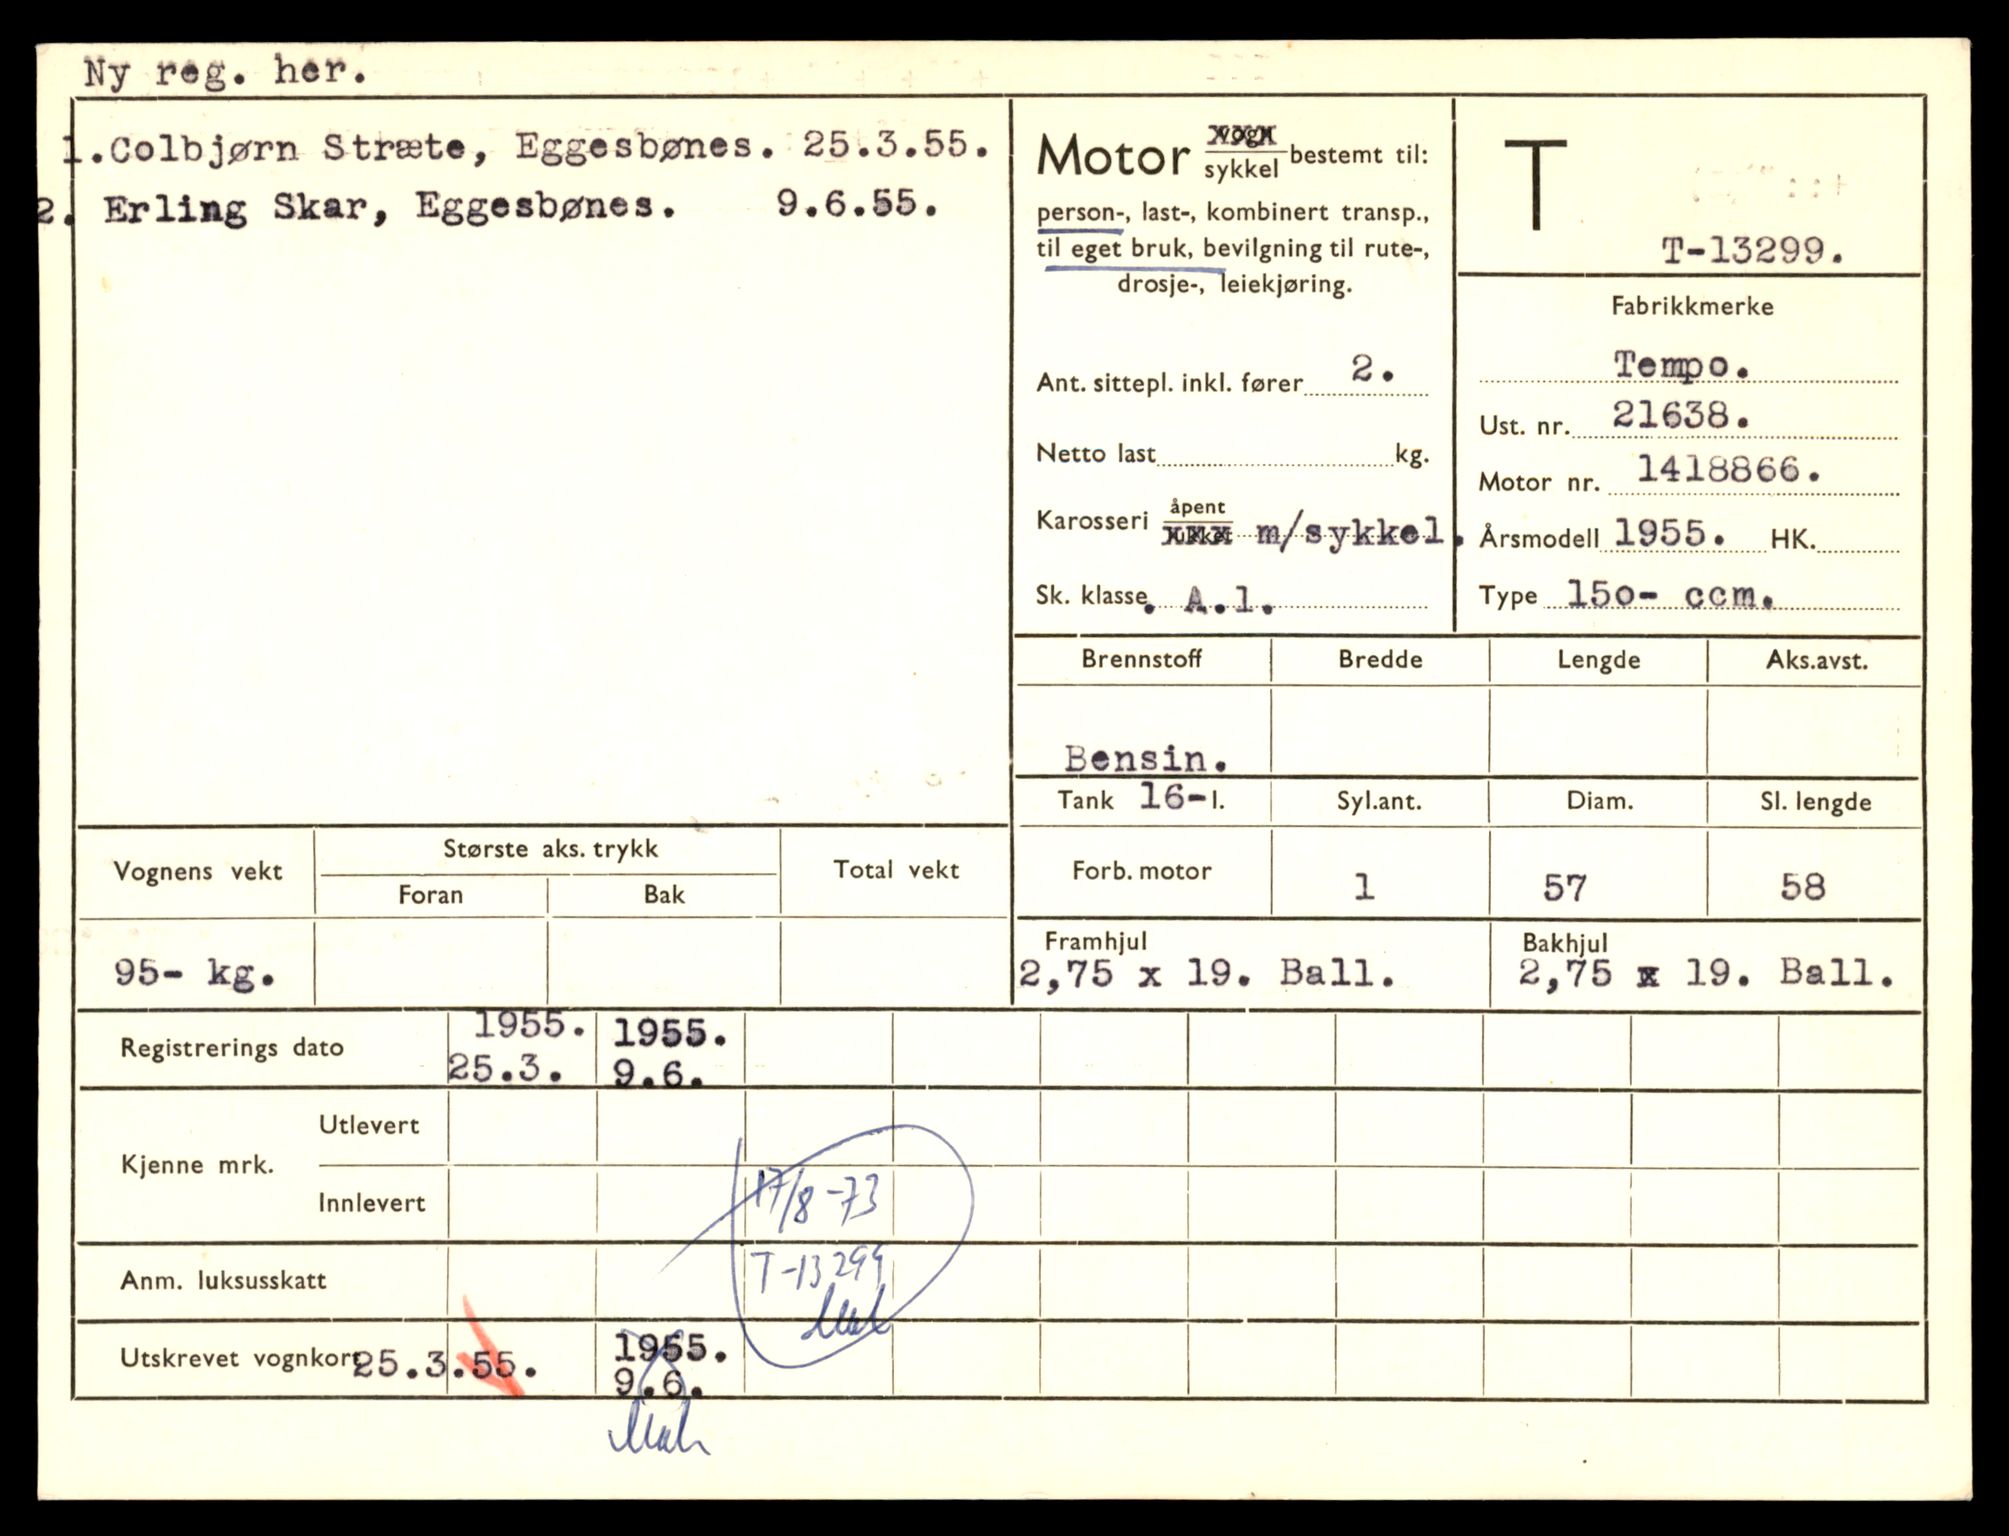 Ny reg. her.
1. Colbjørn Stræte, Eggesbønes. 25.3.55.
2. Erling Skar, Eggesbønes. 9.6.55.
Motor vogn/sykkel bestemt til:
person-, last-, kombinert transp.,
til eget bruk, bevilgning til rute-,
drosje-, leiekjøring.
Ant. sittepl. inkl. fører 2.
Netto last kg.
Karosseri åpent/lukket m/sykkel.
Sk. klasse. A.1.
T
T-13299.
Fabrikkmerke
Tempo.
Ust. nr. 21638.
Motor nr. 1418866.
Årsmodell 1955. HK.
Type 150- ccm.
Brennstoff Bredde Lengde Aks.avst.
Bensin.
Tank 16-l. Syl.ant. Diam. Sl. lengde
Forb. motor 1 57 58
Framhjul Bakhjul
2,75 x 19. Ball. 2,75 x 19. Ball.
Vognens vekt Største aks. trykk Total vekt
Foran Bak
95- kg.
Registrerings dato 1955. 1955.
25.3. 9.6.
Kjenne mrk. Utlevert
Innlevert 17/8-73
T-13299
Anm. luksusskatt
Utskrevet vognkort 25.3.55. 1955.
9.6.